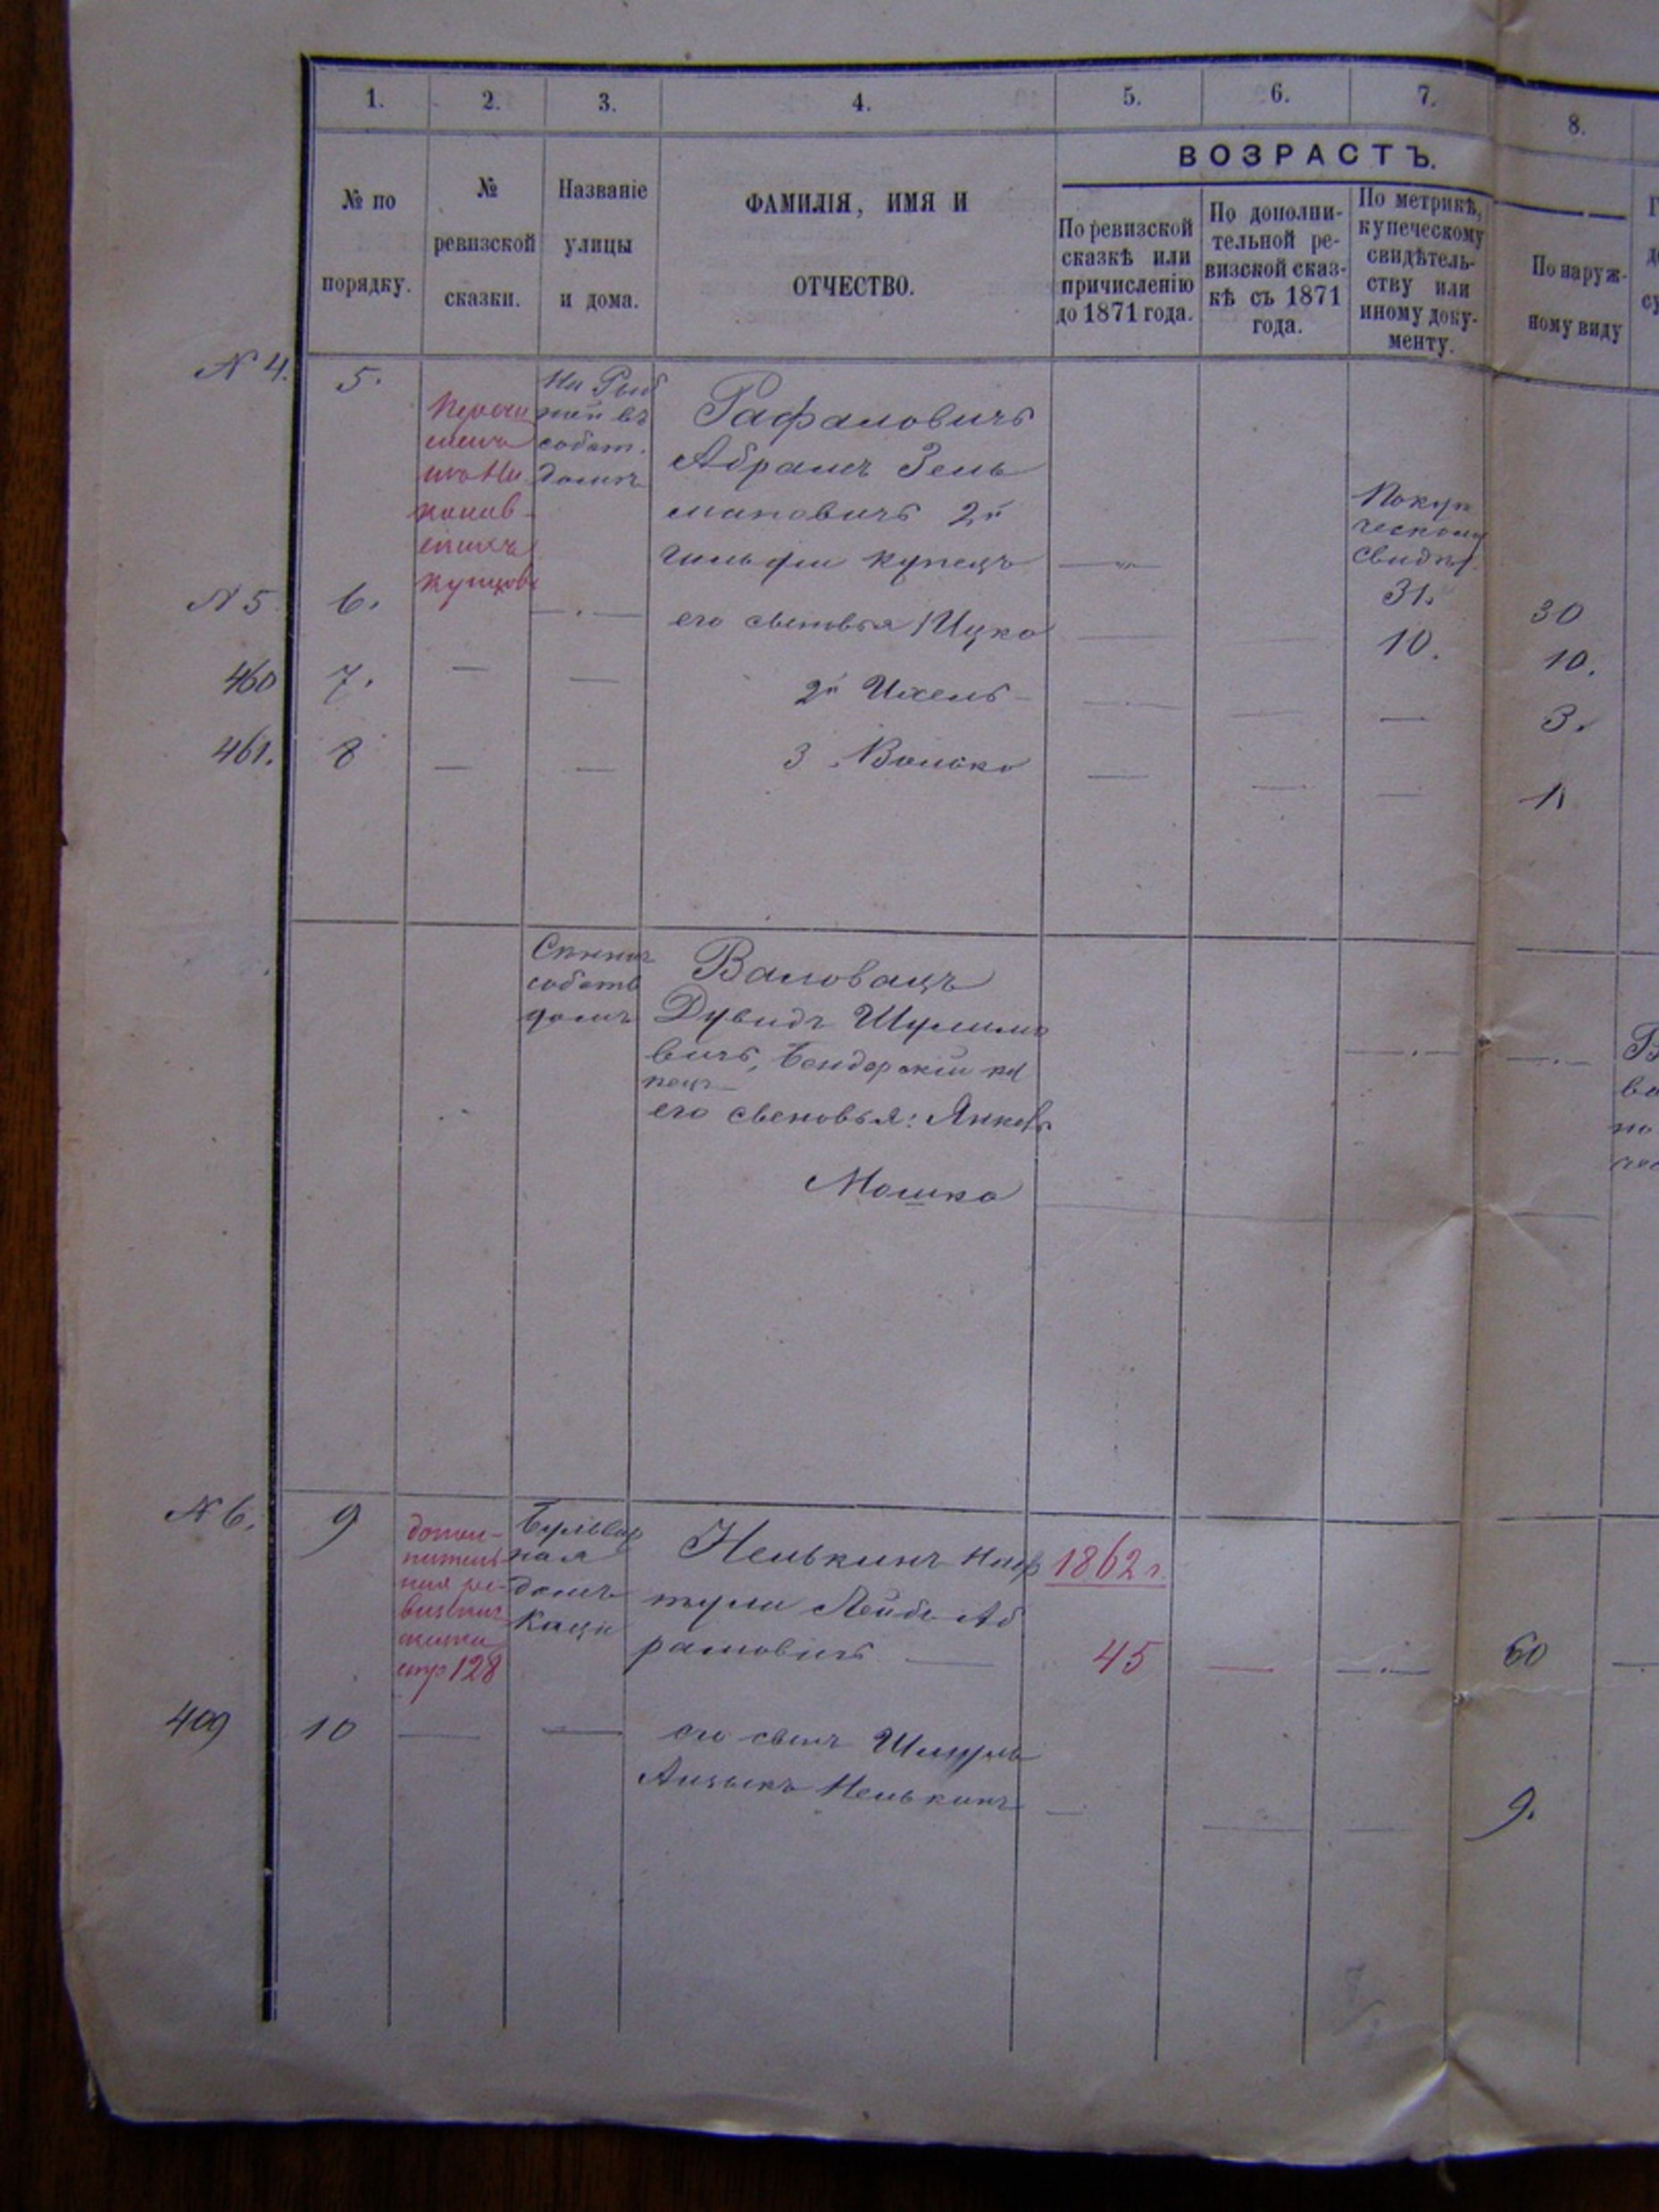 1.
2.
3.
4.
5.
6.
7.
8.
ВОЗРАСТЪ.
№ по
порядку.
№
ревизской
сказки.
Названіе
улицы
и дома.
ФАМИЛІЯ, ИМЯ И
ОТЧЕСТВО.
По ревизской
сказкѣ или
причисленію
до 1871 года.
По дополни-
тельной ре-
визской сказ-
кѣ съ 1871
года.
По метрикѣ,
купеческому
свидѣтель-
ству или
иному доку-
менту.
По наруж-
ному виду
N 4.
5.
купцовъ
На Рыб
ной въ
собст.
домѣ
Рафаловичъ
Абрамъ Зель
мановичъ 2й
гильдіи купецъ
По куп
ческому
свидѣт.
31.
30
N 5
6.
его сыновья 1 Ицко
10.
10.
460
7.
2й Ихель
3.
461.
8
3 Волько
1
собств
домъ
Валовацъ
Дувидъ Шулимо
вичъ, Бендерскій ку
пецъ
его сыновья: Янкель
Мошко
N 6.
9
допол-
нительн
ная ре-
визская
сказка
стр 128
Бульвар
ная
домъ
Каца
Нелькинъ Наф
тули Лейбъ Аб
рамовичъ
1862 г.
45
60
409
10
его сынъ Шмуль
Аизыкъ Нелькинъ
9.